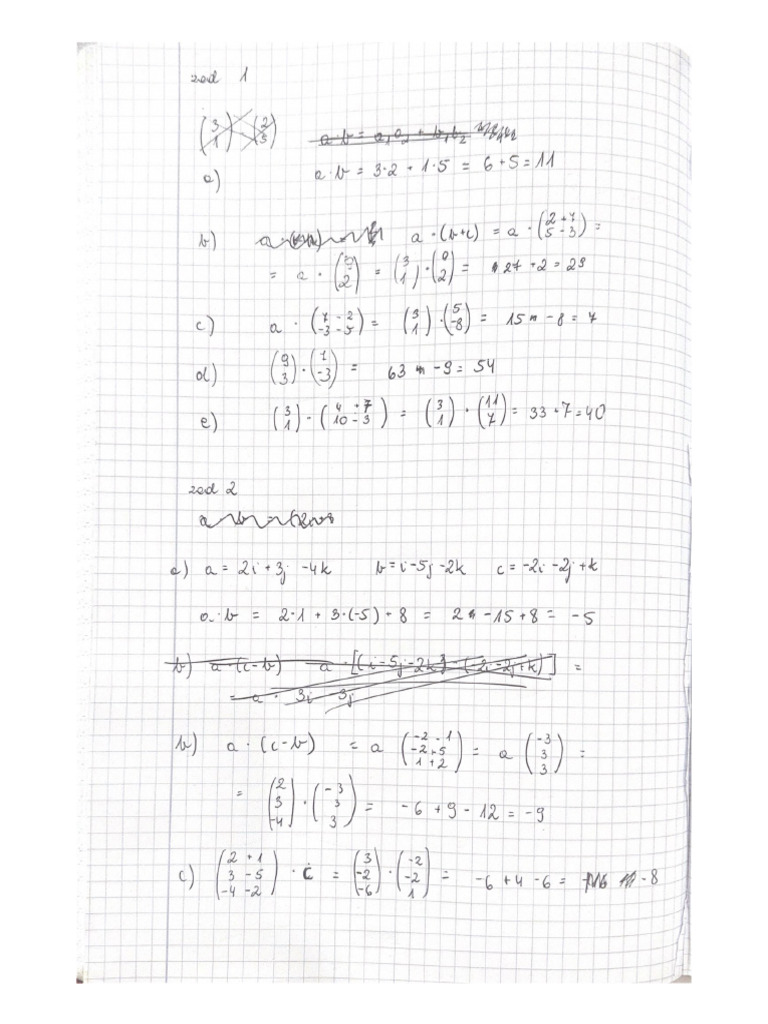 zad 1
(3 1) (2 5)
a·b = a₁a₂ + b₁b₂
a) a·b = 3·2 + 1·5 = 6+5 = 11
b) a·(b+c) = a·(2+7 5-3) =
= a·(9 2) = (3 1)·(9 2) = 27+2 = 29
c) a·(7-2 -3-5) = (3 1)·(5 -8) = 15-8 = 7
d) (9 3)·(7 -3) = 63-9 = 54
e) (3 1)·(4+7 10-3) = (3 1)·(11 7) = 33+7 = 40
zad 2
a) a = 2i+3j-4k b = i-5j-2k c = -2i-2j+k
a·b = 2·1 + 3·(-5) + 8 = 2-15+8 = -5
b) a·(c-b) a·[(i-5j-2k)-(-2i-2j+k)] =
= a· 3i -3j
b) a·(c-b) = a (-2-1 -2+5 1+2) = a (-3 3 3) =
= (2 3 -4)·(-3 3 3) = -6+9-12 = -9
c) (2+1 3-5 -4-2)·c = (3 -2 -6)·(-2 -2 1) = -6+4-6 = -8